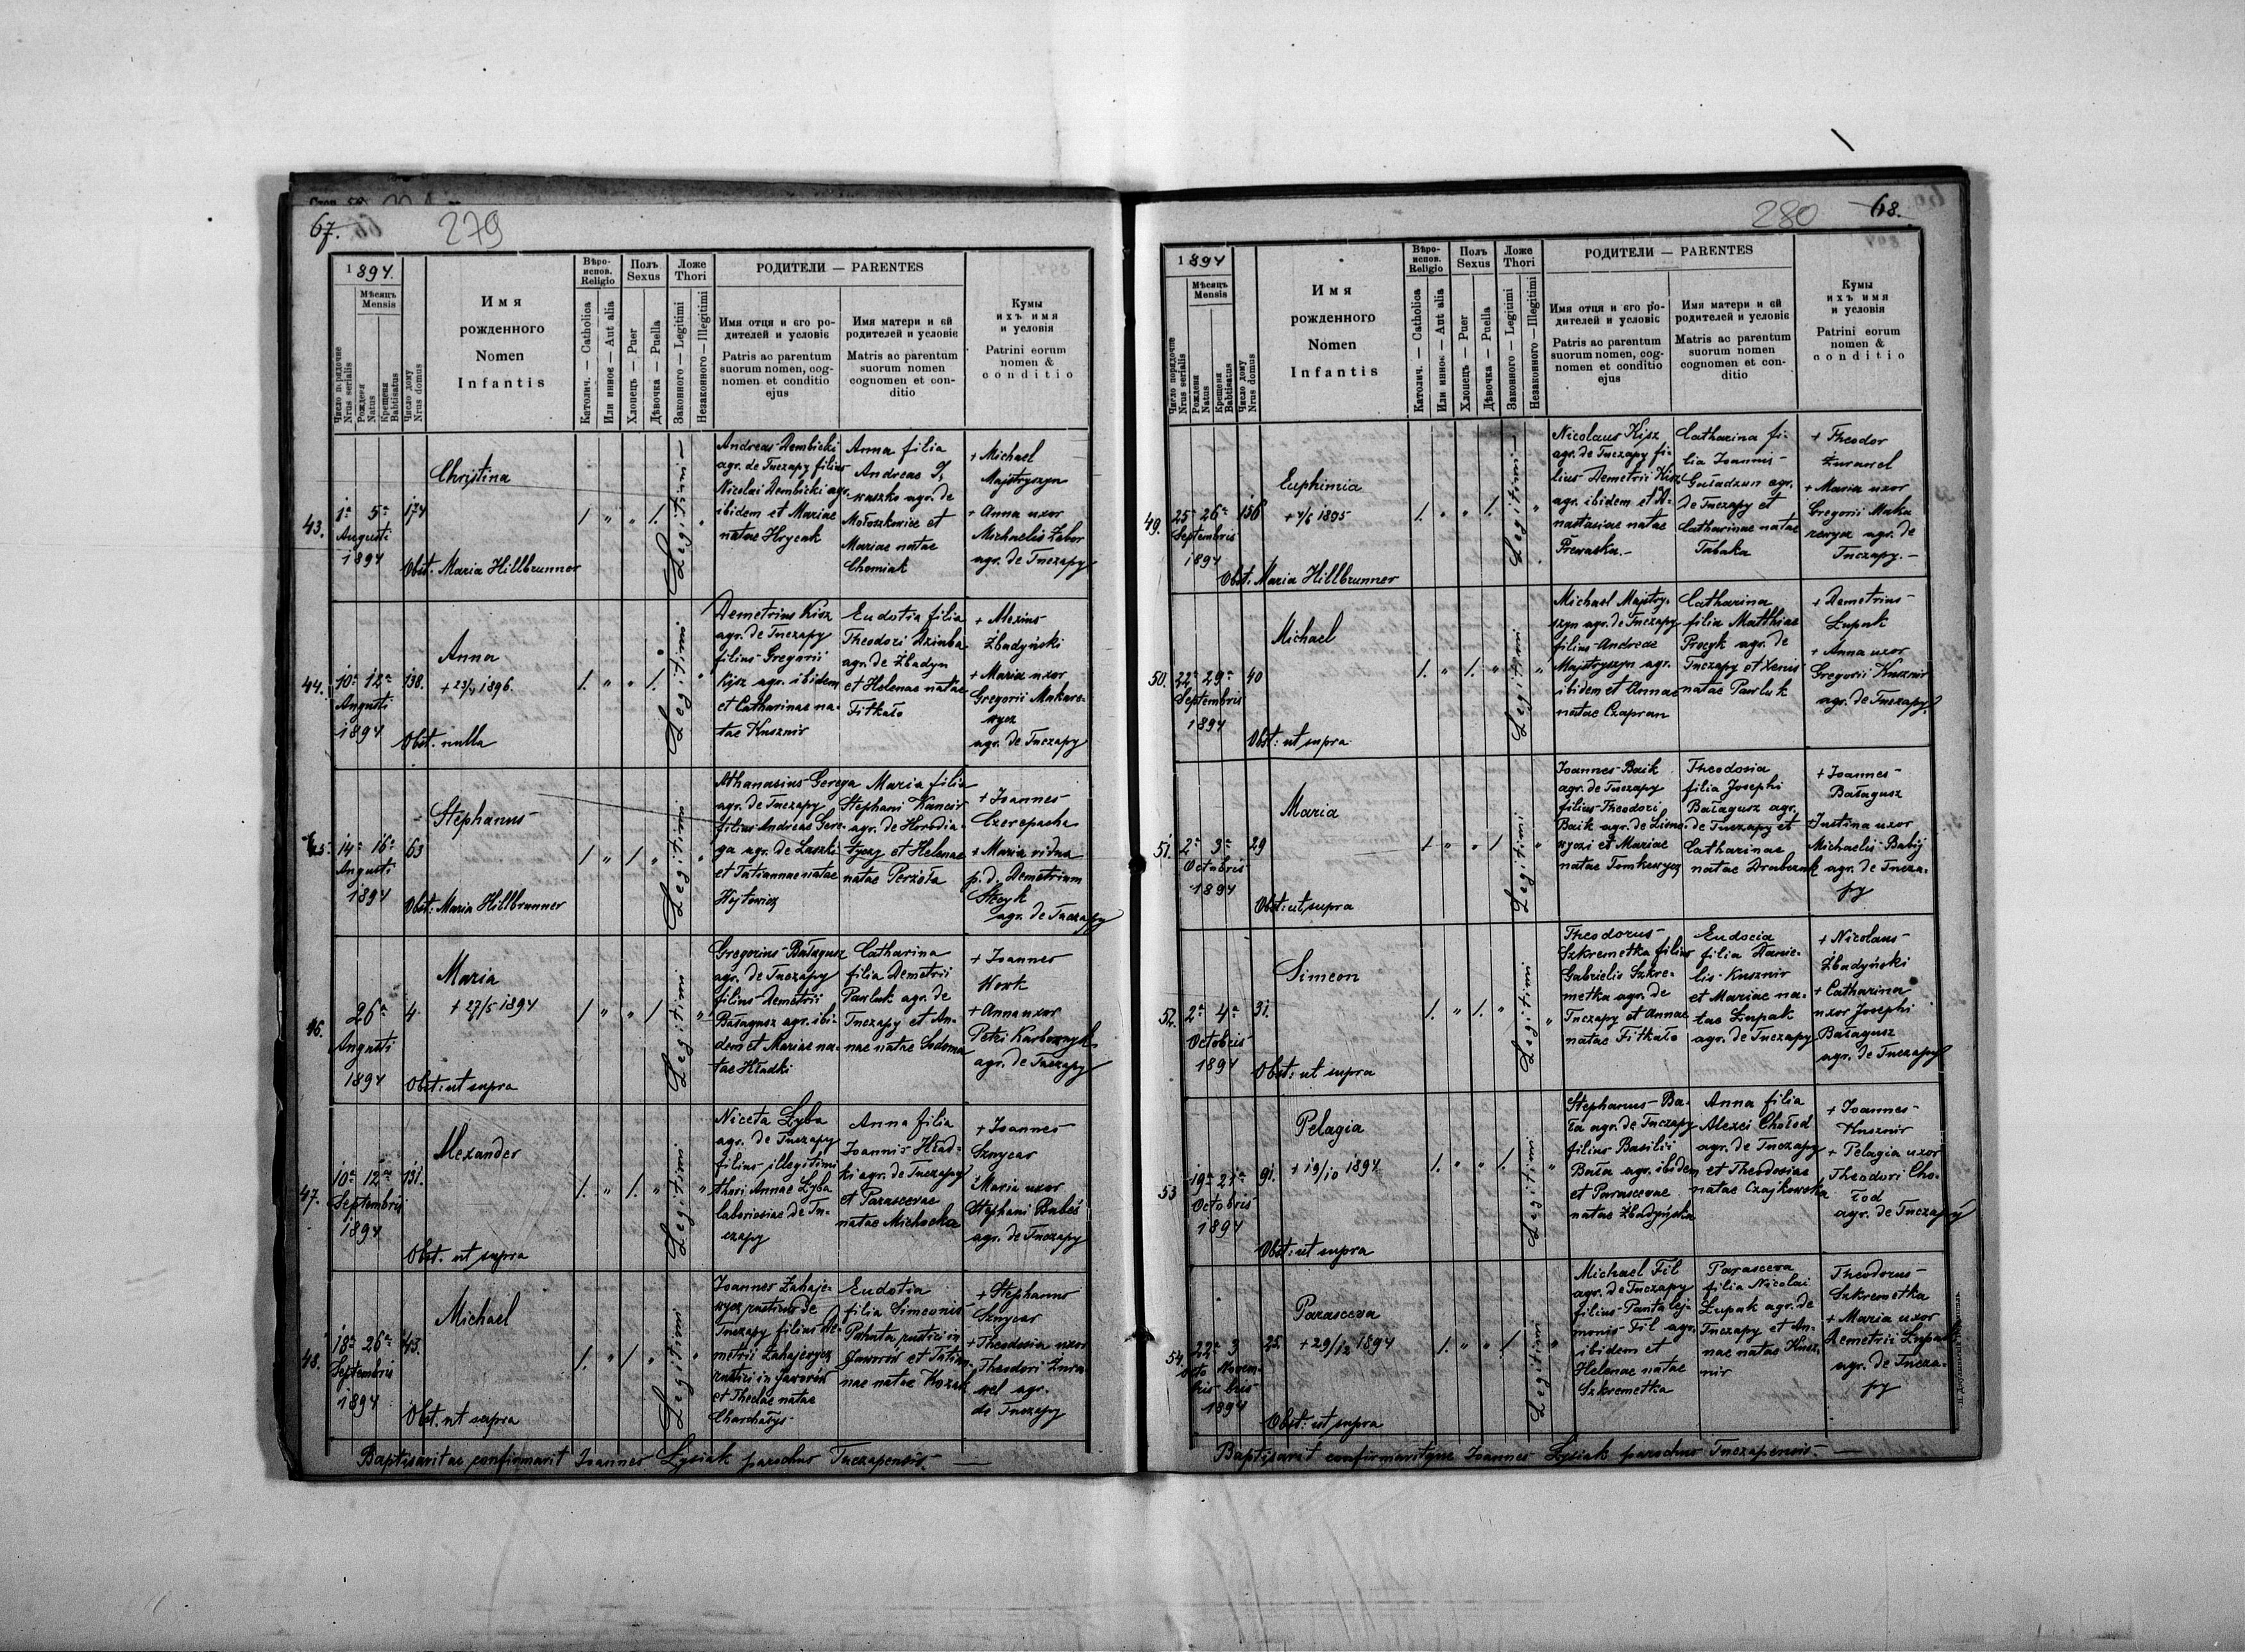 67.
279
1894.
Мѣсяцъ
Mensis
Число порядочне
Nrus serialis
Рождєня
Natus
Крещеня
Babtisatus
Число дому
Nrus domus
Имя
рожденного
Nomen
Infantis
Вѣро-
испов.
Religio
Католич. — Catholica
Или инноє — Aut alia
Полъ
Sexus
Хлопєць — Puer
Дѣвочка — Puella
Ложе
Thori
Законного — Legitimi
Незаконного — Illegitimi
РОДИТЕЛИ — PARENTES
Имя отця и єго ро-
дителей и условіє
Patris ac parentum
suorum nomen, cog-
nomen et conditio
ejus
Имя матери и єй
родителей и условіє
Matris ac parentum
suorum nomen
cognomen et con-
ditio
Кумы
ихъ имя
и условія
Patrini eorum
nomen &
conditio
43.
1a 5a
Augusti
1894
174
Christina
Obst. Maria Hillbrunner
Legitimi
Andreas Dembicki
agr. de Tuczapy filius
Nicolai Dembicki agr.
ibidem et Mariae
natae Hrycak
Anna filia
Andreae
waszko agr. de
Mołoszkowice et
Mariae natae
Chomiak
+ Michael
Majstryszyn
+ Anna uxor
Michaelis Zabor
agr. de Tuczapy
44.
10a 12a
Augusti
1894
138.
Anna
1896
Obst. nulla
Legitimi
Demetrius Kisz
agr. de Tuczapy
filius Gregorii
Kisz agr. ibidem
et Catharinae na-
tae Kusznir
Eudotia filia
Theodori Dziuba
agr. de Zbadyn
et Helenae natae
Fitkało
+ Alexius
Zbadyński
+ Maria uxor
Gregorii Makare-
wycz
agr. de Tuczapy
45.
14a 16a
Augusti
1894
63
Stephanus
Obst: Maria Hillbrunner
Legitimi
Athanasius Gerega
agr. de Tuczapy
filius Andreae Gere-
ga agr. de Laszki
et Tatiannae natae
Wojtowicz
Maria filia
Stephani Kancir
agr. de Horodia-
tyczy et Helenae
natae Perzoła
+ Joannes
Czerepacha
+ Maria vidua
p. d. Demetrium
Stecyk
agr. de Tuczapy
46.
26a
Augusti
1894
4
Maria
+ 27/5 1894
Obst: ut supra
Legitimi
Gregorius Bałagusz
agr. de Tuczapy
filius Demetrii
Bałagusz agr. ibi-
dem et Mariae na-
tae Hładki
Catharina
filia Demetrii
Pawluk agr. de
Tuczapy et An-
nae natae Sodoma
+ Joannes
Work
+ Anna uxor
Petri Karbownyk
agr. de Tuczapy
47.
10a 12a
Septembris
1894
131.
Alexander
Obst. ut supra
Legitimi
Niceta Łyba
agr. de Tuczapy
filius illegitimi
thori Annae Łyba
laboriosiae de Tu-
czapy
Anna filia
Joannis Hład-
ki agr. de Tuczapy
et Parascevae
natae Michocka
+ Joannes
Sznycar
Maria uxor
Stephani Babiś
agr. de Tuczapy
48.
18a 26a
Septembris
1894
43.
Michael
Obst. ut supra
Legitimi
Joannes Zahaje-
wycz rusticus de
Tuczapy filius De-
metrii Zahajewycz
rustici in Jaworów
et Theclae natae
Charchałys
Eudotia
filia Simeonis
Pahuta rustici in
Jaworów et Tatian-
nae natae Kozak
+ Stephanus
Sznycar
+ Theodosia uxor
Theodori Żura-
wel agr.
de Tuczapy
Baptisavit ac confirmavit Joannes Łysiak parochus Tuczapensis.
280
68.
1894
Мѣсяцъ
Mensis
Число порядочне
Nrus serialis
Рождєня
Natus
Крещеня
Babtisatus
Число дому
Nrus domus
Имя
рожденного
Nomen
Infantis
Вѣро-
испов.
Religio
Католич. — Catholica
Или инноє — Aut alia
Полъ
Sexus
Хлопєць — Puer
Дѣвочка — Puella
Ложе
Thori
Законного — Legitimi
Незаконного — Illegitimi
РОДИТЕЛИ — PARENTES
Имя отця и єго ро-
дителей и условіє
Patris ac parentum
suorum nomen, cog-
nomen et conditio
ejus
Имя матери и єй
родителей и условіє
Matris ac parentum
suorum nomen
cognomen et con-
ditio
Кумы
ихъ имя
и условія
Patrini eorum
nomen &
conditio
49.
25a 26a
Septembris
1894
156
Euphimia
1895
Obst. Maria Hillbrunner
Legitimi
Nicolaus Kisz
agr. de Tuczapy fi-
lius Demetrii Kisz
agr. ibidem et A-
nastasiae natae
Prewaska.
Catharina fi-
lia Joannis
Guładzun agr.
de Tuczapy et
Catharinae natae
Tabaka
+ Theodor
Żurawel
+ Maria uxor
Gregorii Maka
rewycz agr. de
Tuczapy.
50.
22a 29a
Septembris
1894
40
Michael
Obst: ut supra
Legitimi
Michael Majstry-
szyn agr. de Tuczapy
filius Andreae
Majstryszyn agr.
ibidem et Annae
natae Czapran
Catharina
filia Matthiae
Procyk agr. de
Tuczapy et Xeniae
natae Pawluk
+ Demetrius
Łupak
+ Anna uxor
Gregorii Kusznir
agr. de Tuczapy
51.
2a 3a
Octobris
1894
29
Maria
Obst: ut supra
Legitimi
Joannes Baik
agr. de Tuczapy
filius Theodori
Baik agr. de Lisno-
wyczi et Mariae
natae Tomkewycz
Theodosia
filia Josephi
Bałagusz agr.
de Tuczapy et
Catharinae
natae Drabczuk
+ Joannes
Bałagusz
+ Justina uxor
Michaelis Babij
agr. de Tucza-
py
52.
2a 4a
Octobris
1894
31.
Simeon
Obst: ut supra
Legitimi
Theodorus
Szkremetka filius
Gabrielis Szkre-
metka agr. de
Tuczapy et Annae
natae Fitkało
Eudocia
filia Danie-
lis Kusznir
et Mariae na-
tae Łupak
agr. de Tuczapy
+ Nicolaus
Zbadyński
+ Catharina
uxor Josephi
Bałagusz
agr. de Tuczapy
53
19a 21a
Octobris
1894
91.
Pelagia
+ 19/10 1894
Obst: ut supra
Legitimi
Stephanus Ba-
ła agr. de Tuczapy
filius Basilii
Bała agr. ibidem
et Parascevae
natae Zbadyńska
Anna filia
Alexei Chołod
agr. de Tuczapy
et Theodosiae
natae Czajkowska
+ Joannes
Kusznir
+ Pelagia uxor
Theodori Cho-
łod
agr. de Tuczapy
54.
22a 3
Octo Novem-
bris bris
1894
25.
Parasceva
+ 29/12 1894
Obst: ut supra
Legitimi
Michael Fil
agr. de Tuczapy
filius Pantalej-
monis Fil agr.
ibidem et
Helenae natae
Szkremetka
Parasceva
filia Nicolai
Łupak agr. de
Tuczapy et An-
nae natae Kusz-
nir
Theodorus
Szkremetka
+ Maria uxor
Demetrii Łupak
agr. de Tucza-
py
Baptisavit confirmavitque Joannes Łysiak parochus Tuczapensis.